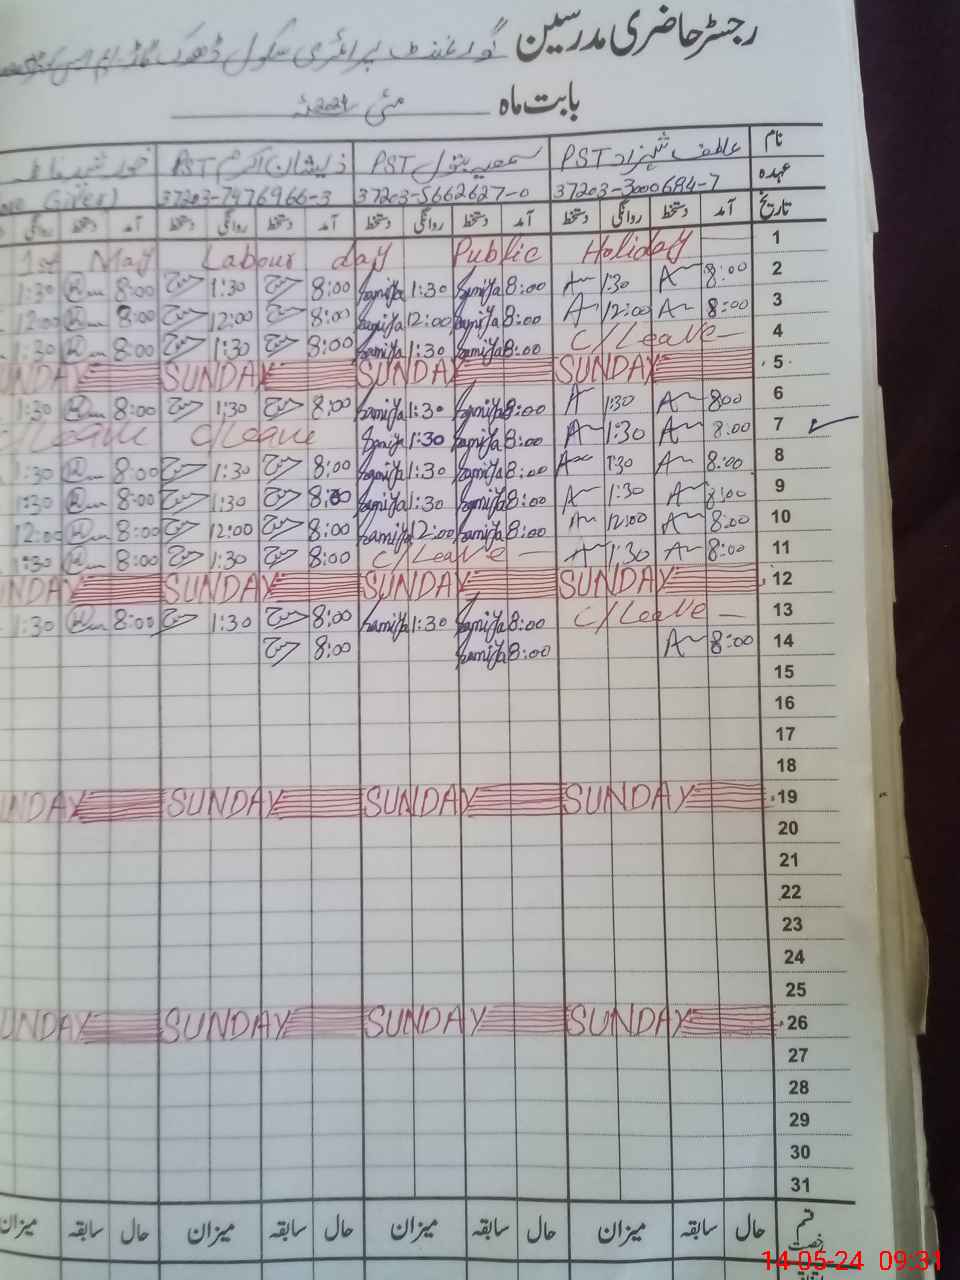 رجسٹر حاضری مدرسین گورنمنٹ پرائمری سکول ڈھوک
بابت ماہ مئی 2024ء
نام عاطف شہزاد PST سمعیہ بتول PST ذیشان اکرم PST
عہدہ 37203-3000684-7 37203-5662627-0 37203-7976966-3 Giver)
تاریخ آمد دستخط روانگی دستخط آمد دستخط روانگی دستخط آمد دستخط روانگی دستخط آمد دستخط روانگی
1 1st May Labour day Public Holiday
2 8:00 A 1:30 A 8:00 Samiya 1:30 Samiya 8:00 1:30 8:00 1:30
3 8:00 A 12:00 A 8:00 Samiya 12:00 Samiya 8:00 12:00 8:00 12:00
4 C/Leave 8:00 Samiya 1:30 Samiya 8:00 1:30 8:00 1:30
5 SUNDAY SUNDAY SUNDAY SUNDAY
6 8:00 A 1:30 A 8:00 Samiya 1:30 Samiya 8:00 1:30 8:00 1:30
7 8:00 A 1:30 A 8:00 Samiya 1:30 Samiya C/Leave C/Leave
8 8:00 A 1:30 A 8:00 Samiya 1:30 Samiya 8:00 1:30 8:00 1:30
9 8:00 A 1:30 A 8:00 Samiya 1:30 Samiya 8:00 1:30 8:00 1:30
10 8:00 A 12:00 A 8:00 Samiya 12:00 Samiya 8:00 12:00 8:00 12:00
11 8:00 A 1:30 A C/Leave 8:00 1:30 8:00 1:30
12 SUNDAY SUNDAY SUNDAY SUNDAY
13 C/Leave 8:00 Samiya 1:30 Samiya 8:00 1:30 8:00 1:30
14 8:00 A 8:00 Samiya 8:00
15
16
17
18
19 SUNDAY SUNDAY SUNDAY SUNDAY
20
21
22
23
24
25
26 SUNDAY SUNDAY SUNDAY SUNDAY
27
28
29
30
31
قسم رخصت حال سابقہ میزان حال سابقہ میزان حال سابقہ میزان حال سابقہ میزان
14-05-24 09:31